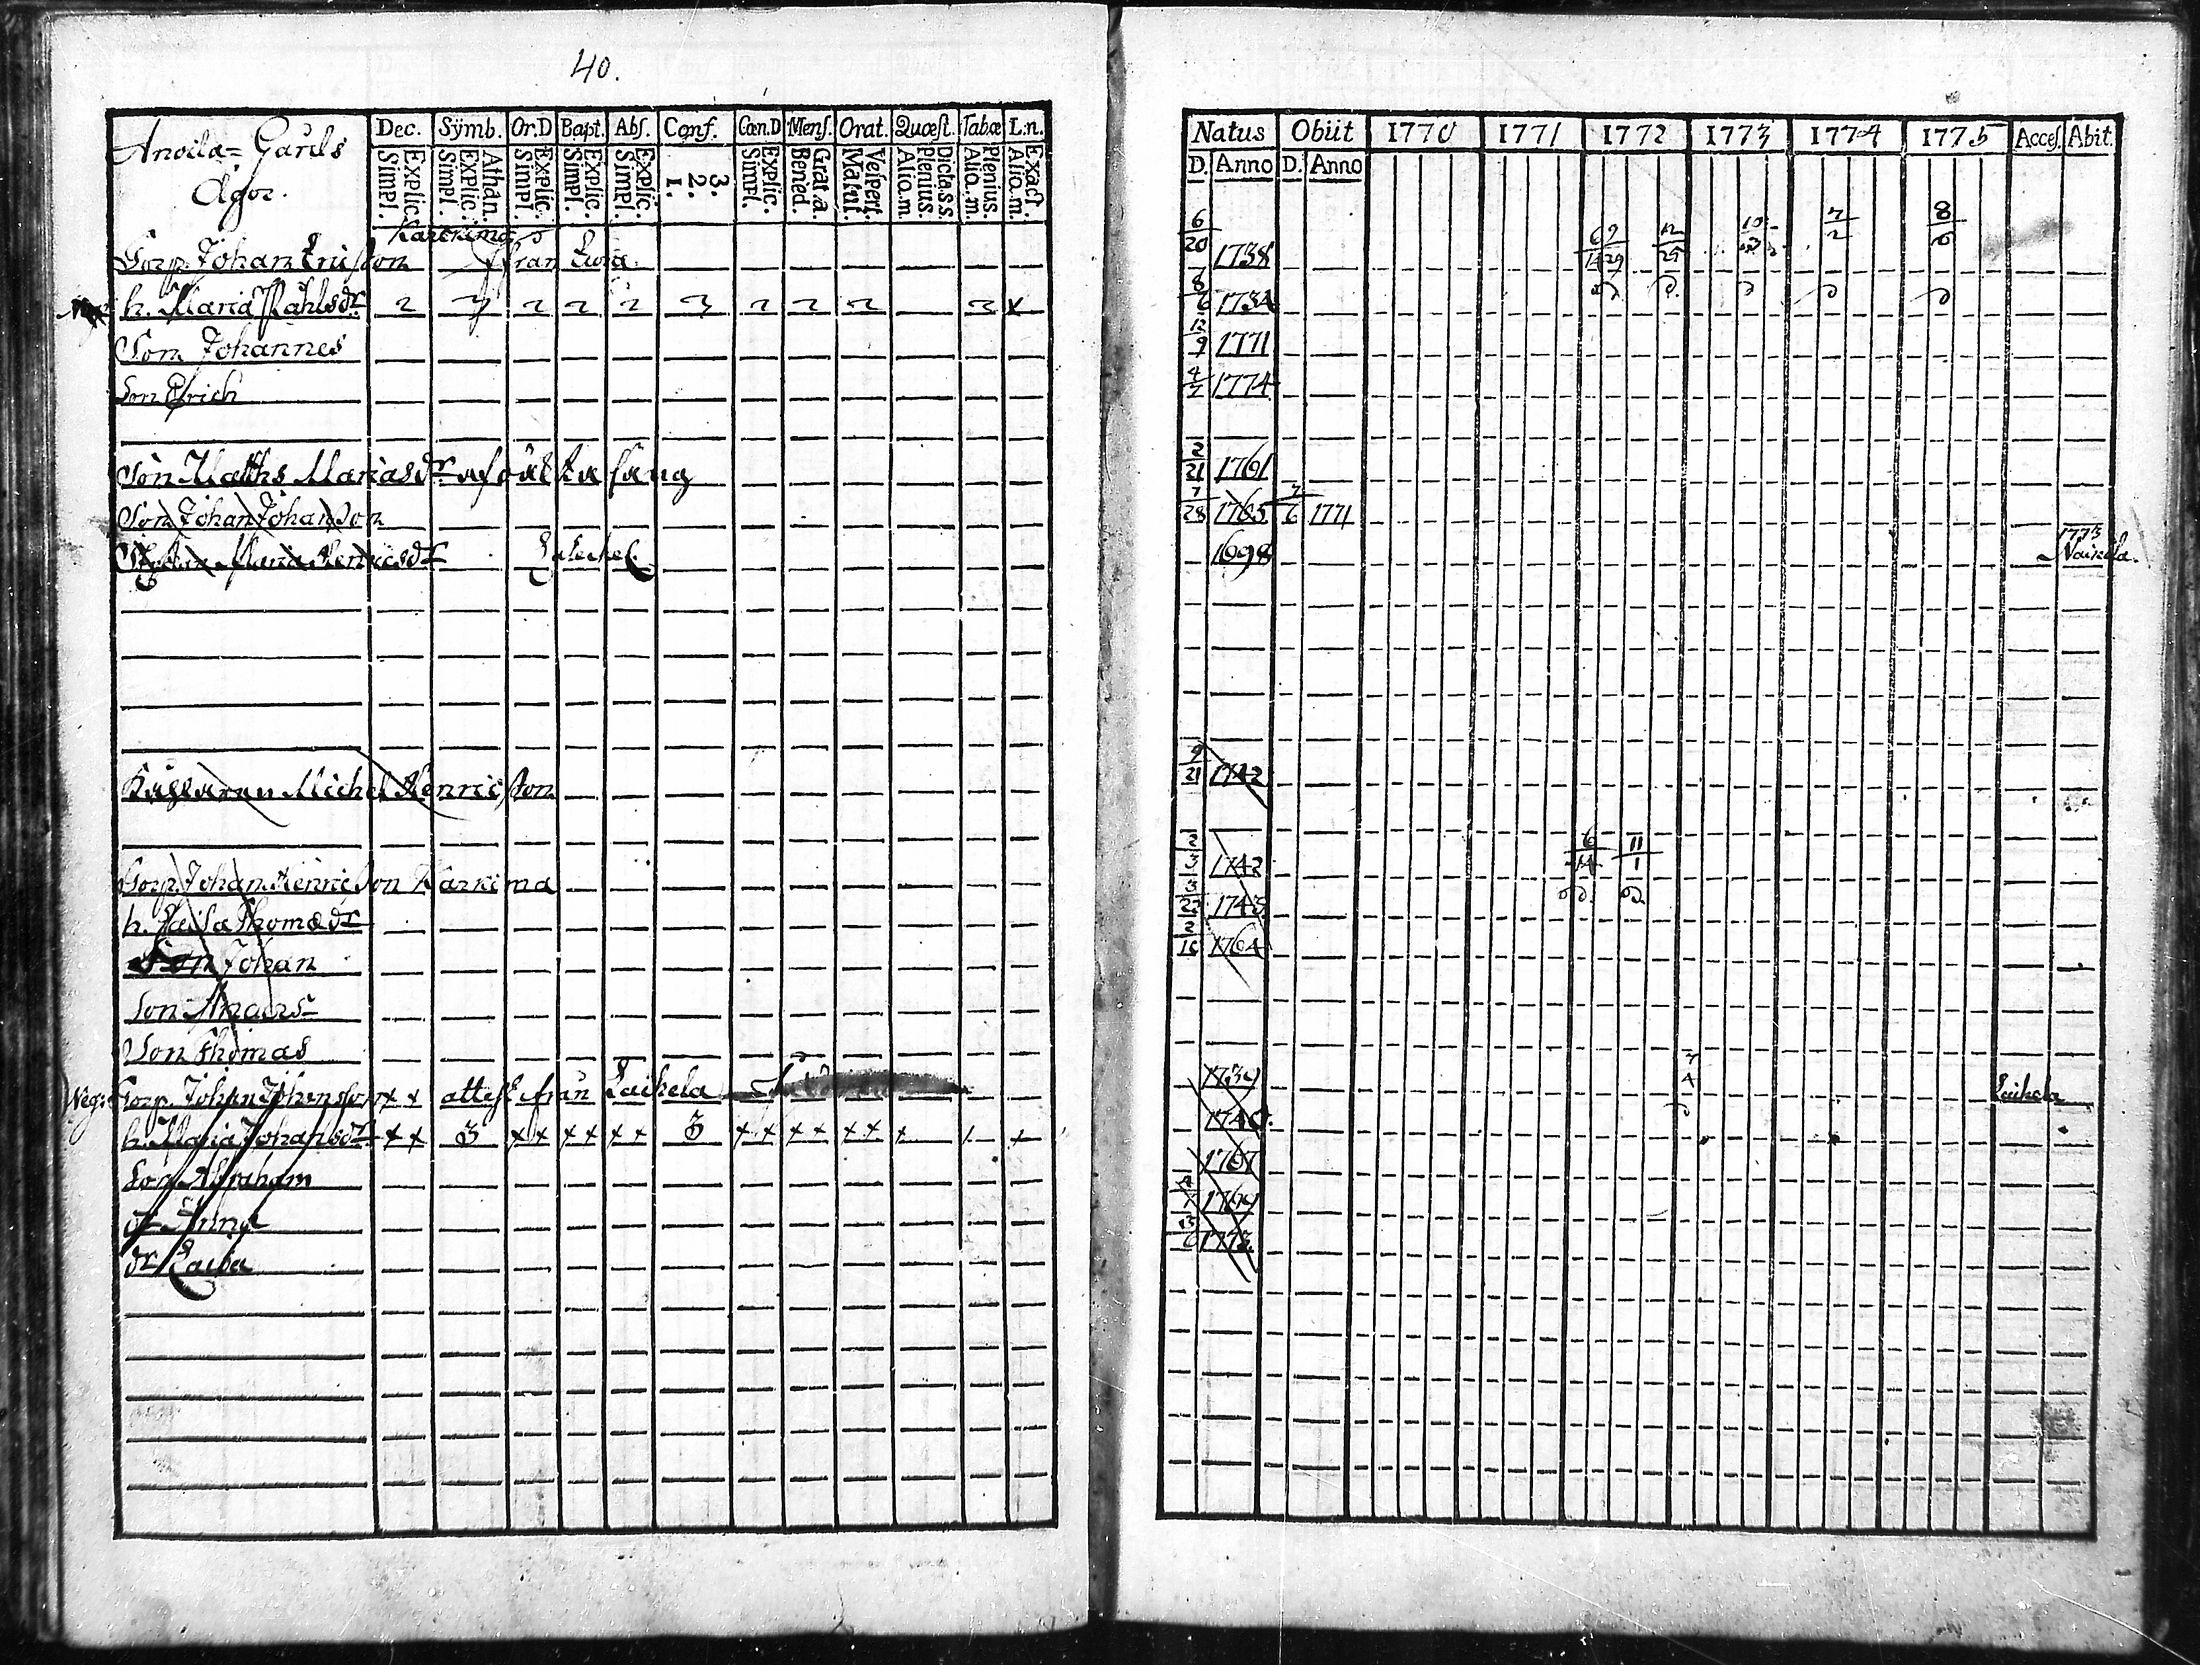 40.
Anoila= Gårds
Ägor.
Dec. Sÿmb. Or.D Bapt. Abs. Conf. Cœn.D Mens. Orat. Quæst. Tabæ L.n.
Explic. Simpl. Athan. Explic. Simpl. Explic. Simpl. Explic. Simpl. Explic. Simpl. 3. 2. 1. Explic. Simpl. Grat.a. Bened. Vespert. Matut. Dicta.s.s. Plenius. Aliq.m. Plenius. Aliq.m. Exact. Aliq.m.
Karkima
Corp. Johan från
h. Maria Påhlsdr 2 2 2 2 2 2 2 x
Son Johannes
Son Erich
Son Matths Mariasdr af oäkta säng
Son Johan Johansson
Maria Henricsdr
Michel Henricsson
Corp. Johan Henricsson Karkima
h. Thomædr
Son Johan
Son Anders
Son Thomas
Corp. Johan Johansson x x attest från Laikela
h. Maria Johansdr x x 3 x x x x x x 3 x x x x x x x x
Son Abraham
dr Anna
dr Caisa
Natus Obiit 1770 1771 1772 1773 1774 1775 Acces. Abit.
D. Anno D. Anno
6/20 1738 12/29 7/2 8/6
8/6 1734
12/9 1771
4/7 1774
2/21 1761
7/28 1765 7/6 1771
1698 1773
9/21 1742
2/3 1742 6/14 11/1
3/22 1743
2/16 1764
1739 7/4 Laikela
1740
1767
1769
1773